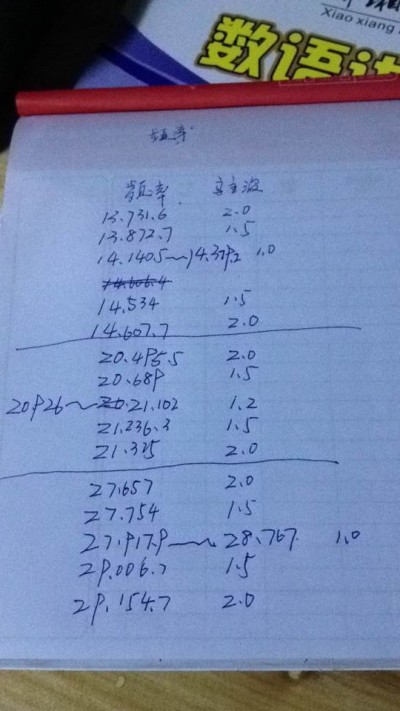 Xiao xiang
数语
频率
频率 驻波
13.731.6 2.0
13.872.7 1.5
14.140.5~14.379.2 1.0
14.606.4
14.534 1.5
14.607.7 2.0
20.495.5 2.0
20.689 1.5
20926~21.102 1.2
21.236.3 1.5
21.325 2.0
27.657 2.0
27.754 1.5
27.917.9~28.767 1.0
29.006.7 1.5
29.154.7 2.0